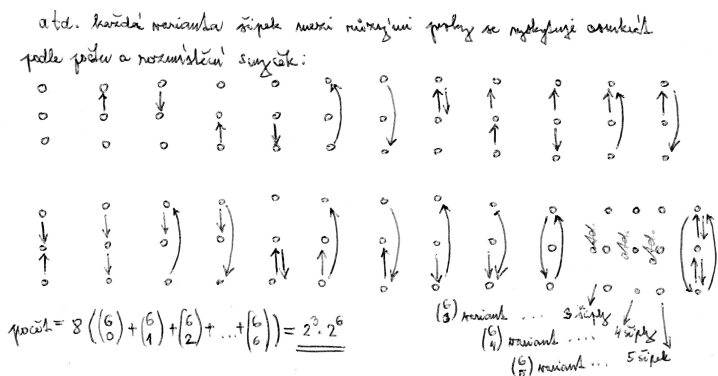 atd. každá varianta šipek mezi různými prvky se vyskytuje osmkrát
podle počtu a rozmístění smyček:
atd. atd. atd.
počet = 8 ((6 0) + (6 1) + (6 2) + ... + (6 6)) = 2^3 · 2^6
(6 3) variant .... 3 šipky
(6 4) variant ... 4 šipky
(6 5) variant ... 5 šipek